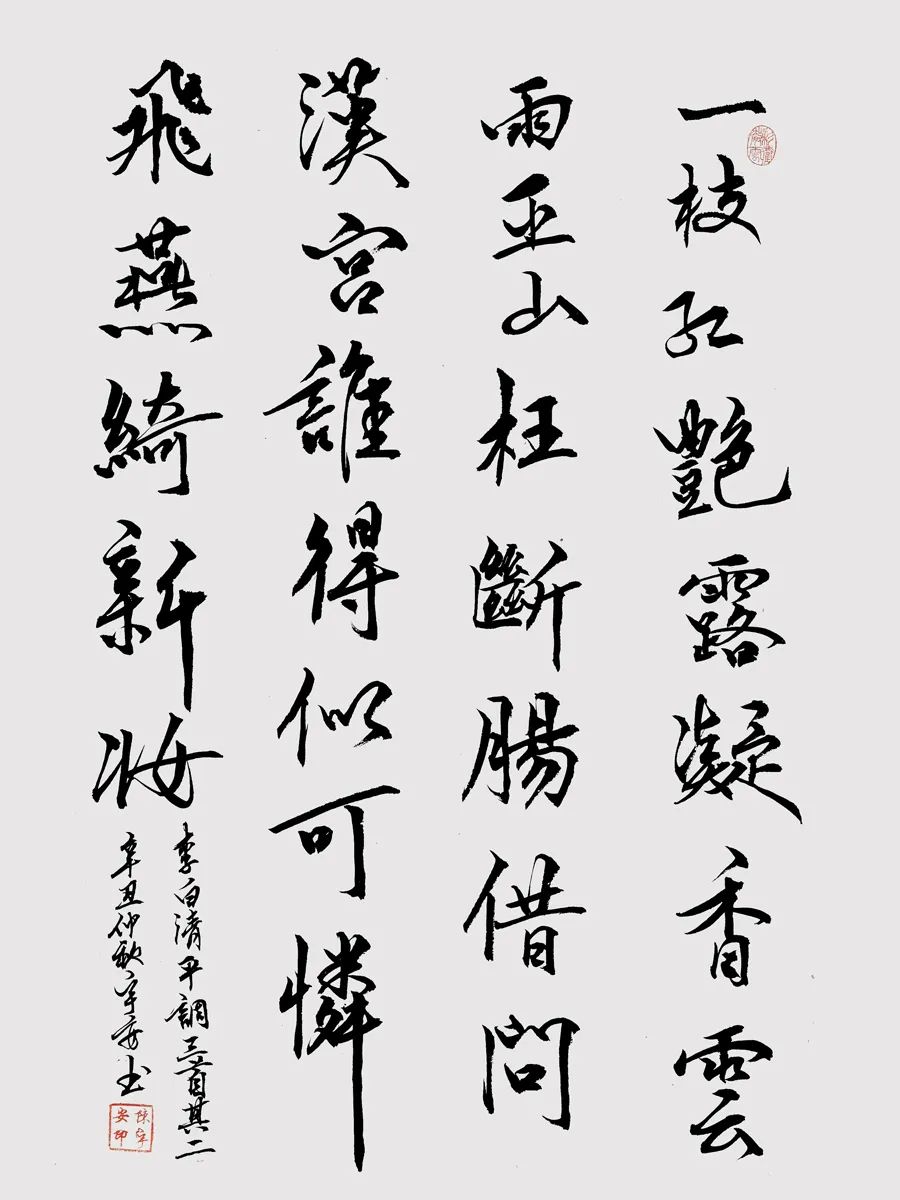 一枝紅艷露凝香雲
雨巫山枉斷腸借問
漢宮誰得似可憐
飛燕綺新妝
李白清平調三首其二
辛丑仲秋宇安书
陳宇安印